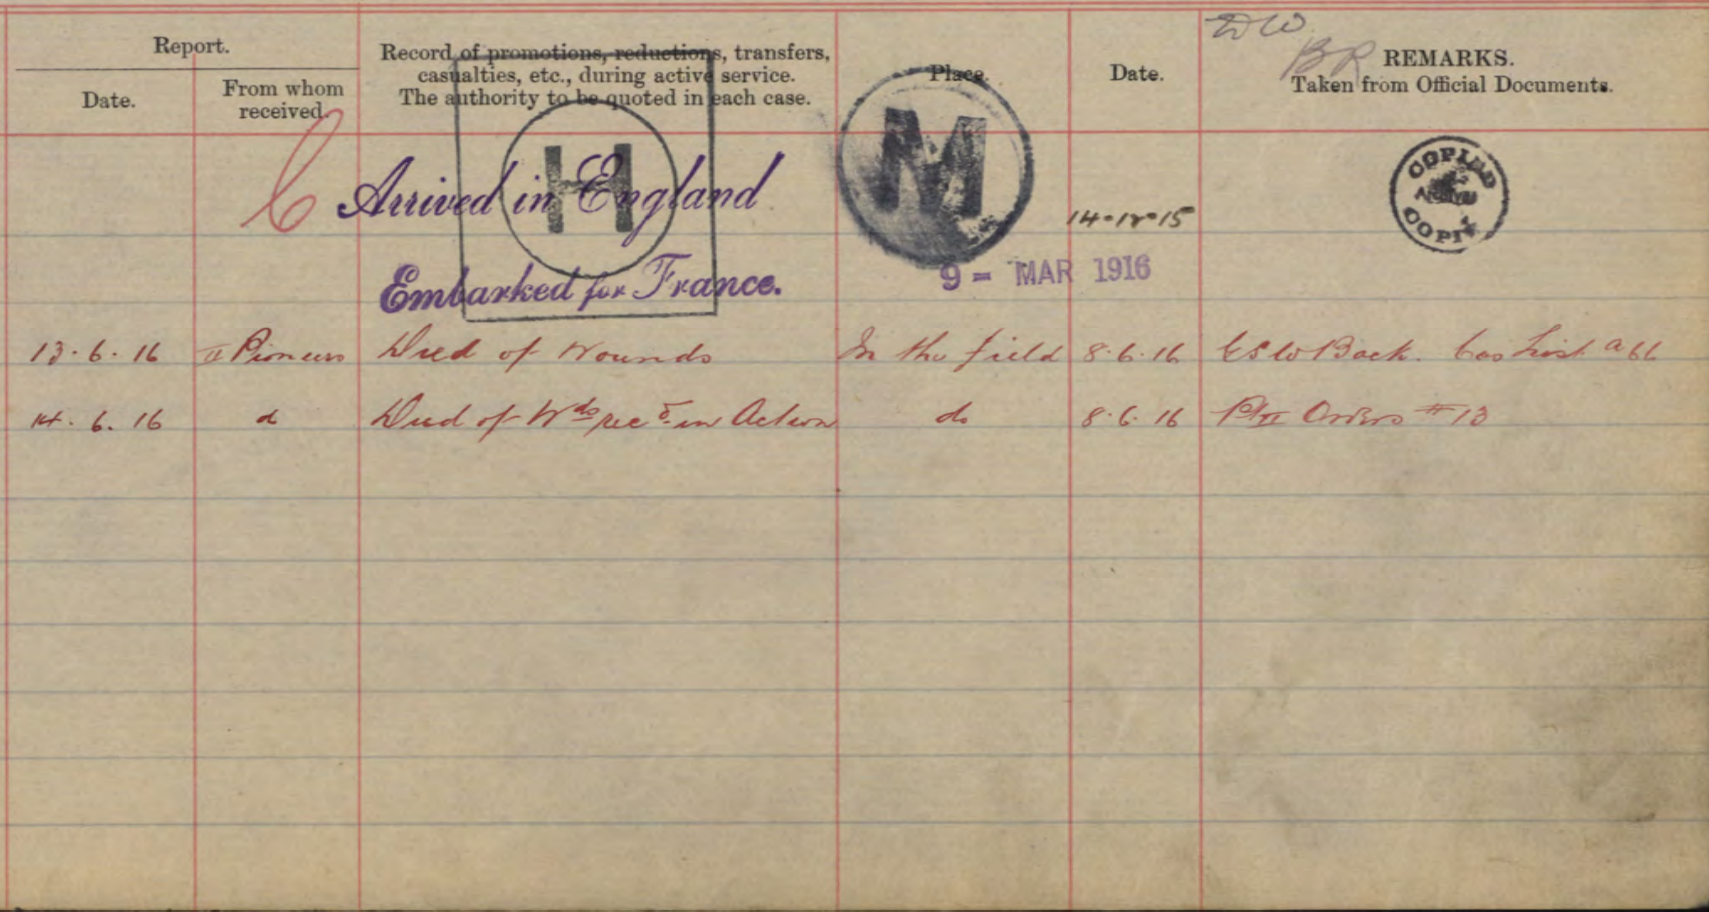 DW
BR
Report. Record of promotions, reductions, transfers, casualties, etc., during active service. The authority to be quoted in each case. Place. Date. REMARKS. Taken from Official Documents.
Date. From whom received.
C Arrived in England H M 14-12-15 COPIED COPIED
Embarked for France. 9 - MAR 1916
13.6.16 II Pioneers Died of Wounds In the field 8.6.16 GSW Back. Cas List a 66
14.6.16 do Died of Wds recd in Action do 8.6.16 Pt II Orders #13